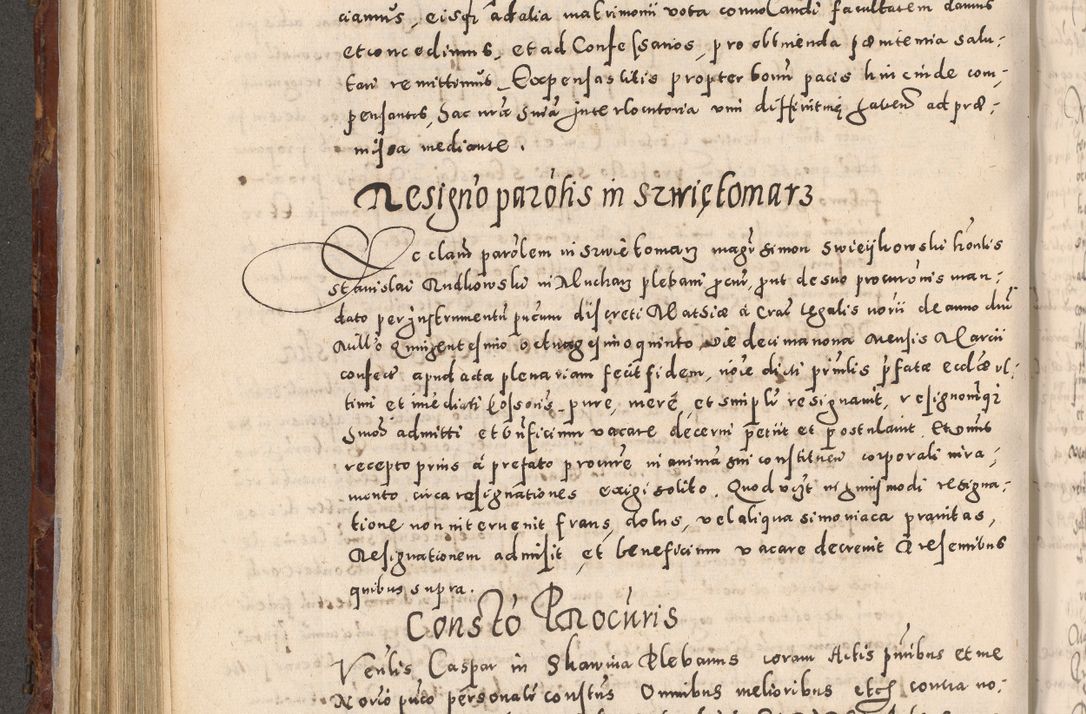 ciamus, eisq3 ad alia matrimonii vota convolandi facultatem damus
et concedimus, et ad Confessarios, pro obtinenda pœnitentia salu-
tari remittimus. Expensas litis propter bonũ pacis hinc inde com-
pensantes, hac nrã Sniã interlocutoria vim diffinitivę haben ad præ-
missa mediante.
Resigño parõlis in Szwiętomarz
Ecclam parõlem in Szwiętomarz magr Simon Swieijkowski hõnlis
Stanislai Rudkowski in Mucharz plebani pcur, put de suo procurõnis man-
dato per instrumentũ pucum discreti Mathiæ à Cras Regalis norii de anno dni
Millõ Quingentesimo octuagesimo quinto, die decima nona Mensis Marcii
confectũ apud acta plenariam fecit fidem, noie dicti prinlis pfatæ ecclæ vl-
timi et imediati possoris pure, mere, et simplr resignavit, resignoniq3
Suos admitti et bnficium vacare decerni petiit et postulavit. Et Dnus
recepto prius à prefato procure in anima sui constituen corporali iura-
mento circa resignationes exigi solito. Quod vcz in huiusmodi resigna-
tione non intervenit fraus, dolus, vel aliqua simoniaca pravitas,
Resignationem admisit, et beneficium vacare decrevit Præsentibus
quibus supra.
Constõ Procuris
Venlis Caspar in Skawina Plebanus coram Actis pnibus et me
Norio puco personalr constus Omnibus melioribus etc contra no-